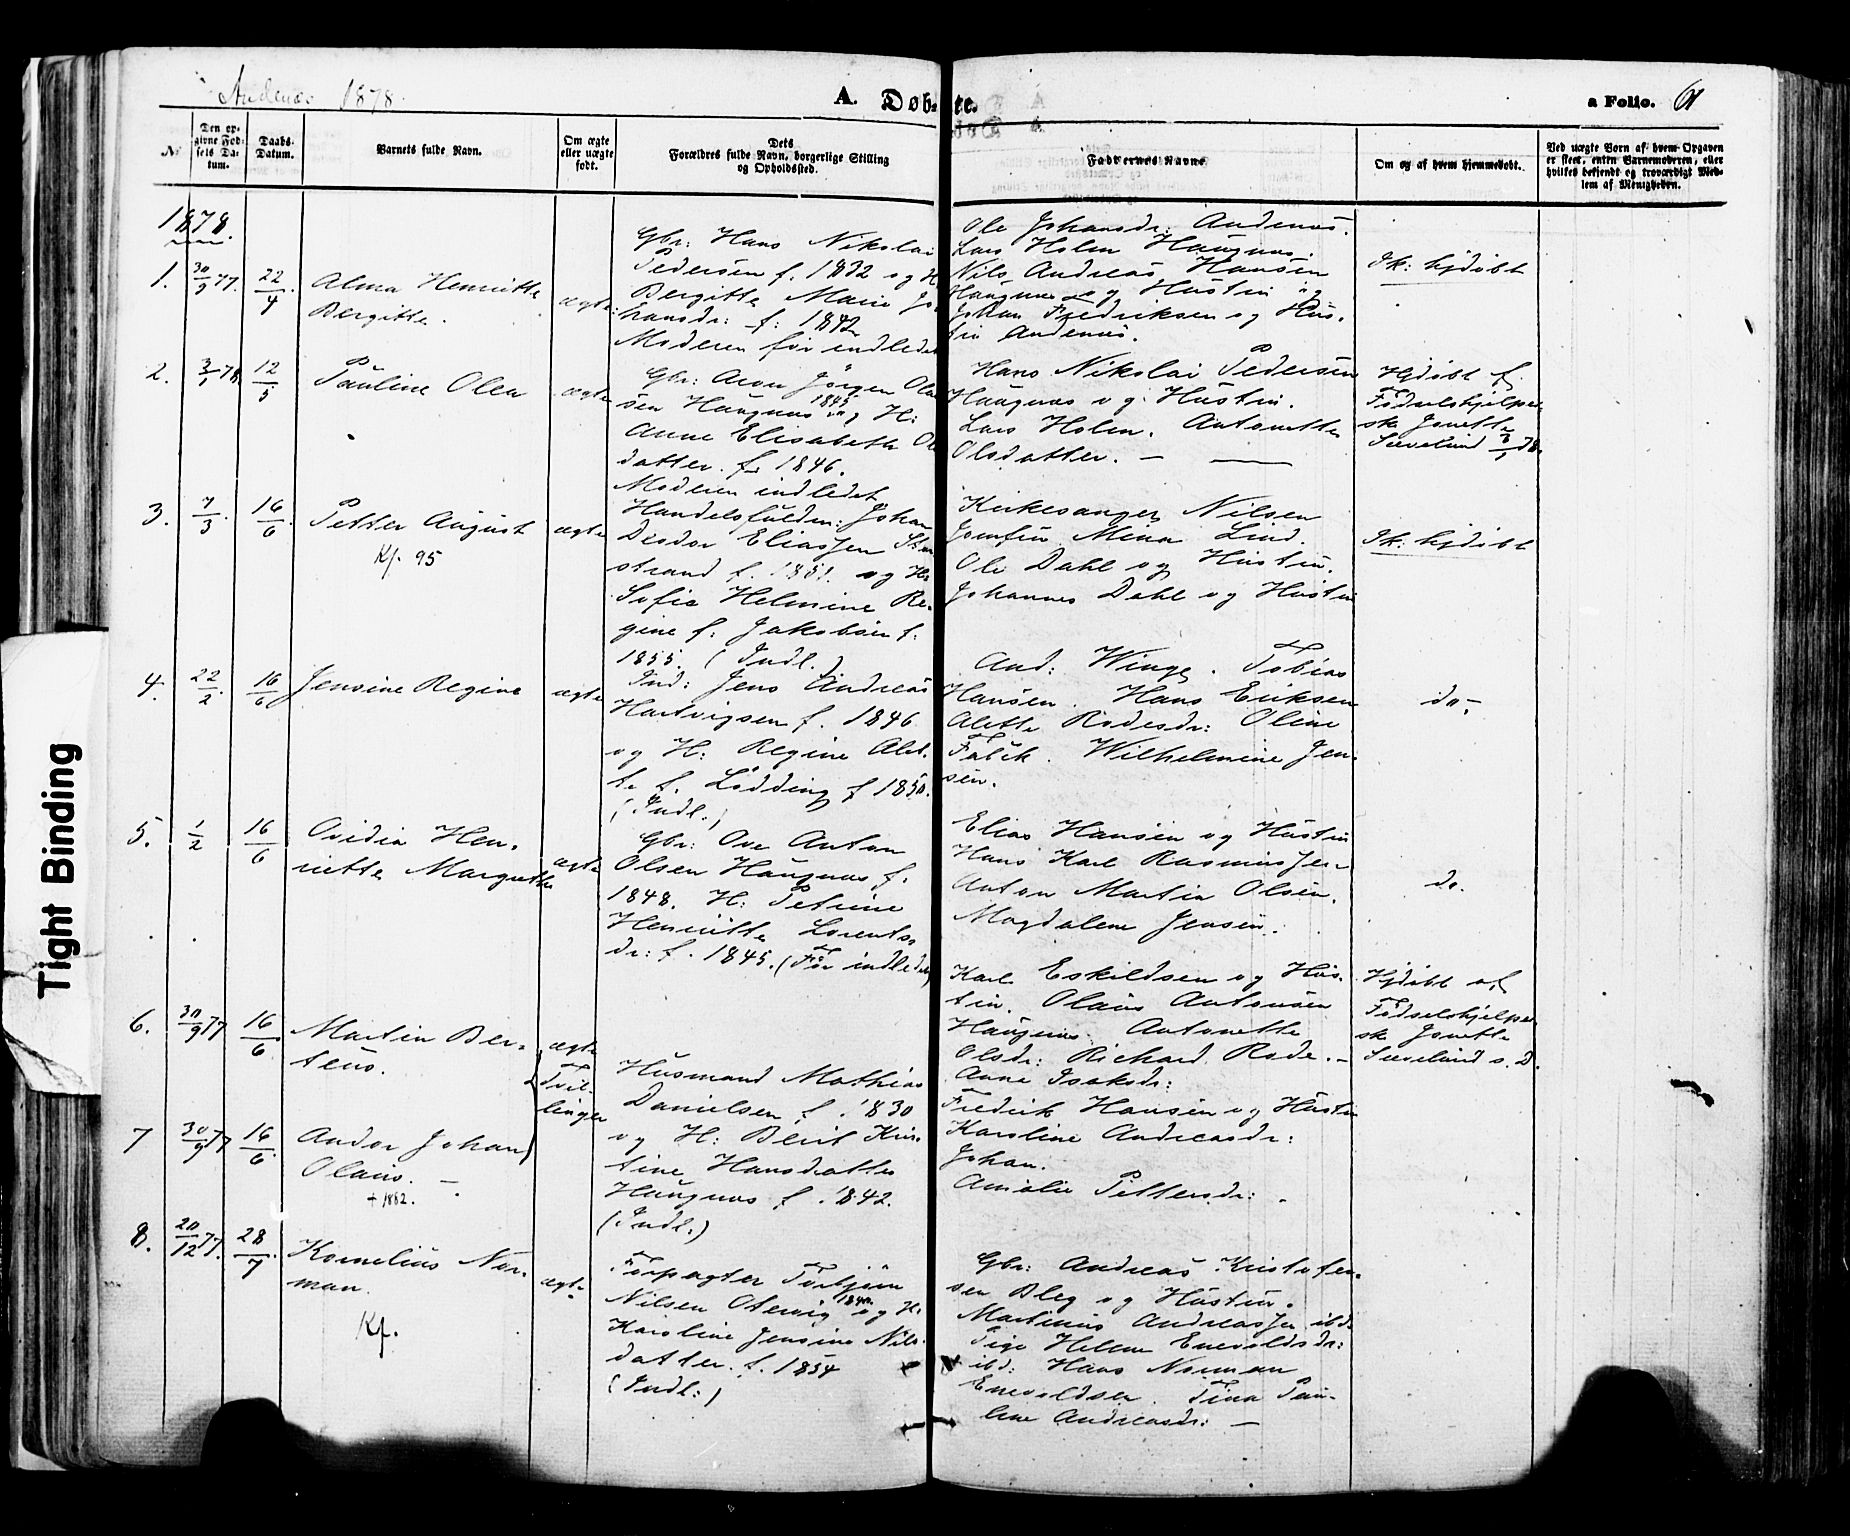 Andenæs 1878.
A. Døbte.
a Folio. 61
No
Den opgivne Fødsels Datum.
Daabs-Datum.
Barnets fulde Navn.
Om ægte eller uægte født.
Dets Forældres fulde Navn, borgerlige Stilling og Opholdssted.
Faddernes Navne.
Om og af hvem hjemmedøbt.
Ved uægte Børn af hvem Opgaven er skeet, enten Barnemoderen, eller hvilket bekjendt og troværdigt Medlem af Menigheden.
1878.
1.
30/9 77.
22/4
Alma Henriette
Bergitte.
ægte
Gbr: Hans Nikolai
Pedersen f. 1832 og H
Bergitte Marie Jo
hansdr: f: 1842
Moderen før indledet
Ole Johansdr: Andenæs.
Lars Holm Haugnæs.
Nils Andreas Hansen
Haugnæs og Hustru og
Johan Fredriksen og Hus-
tru Andenæs.
Ik: hjdøbt
2.
3/1 78.
12/5
Pauline Olea
ægte
Gbr: Aron Jørgen Ol
sen Haugnæs 1845 og H:
Anne Elisabeth Ols
datter. f. 1846.
Moderen indledet
Hans Nikolai Pedersen
Haugnæs og Hustru.
Lars Holm. Antonette
Olsdatter. — —
Hjdøbt af
Fødselshjelper-
ske Jonette
Sævelund 3/1 78.
3.
7/3.
16/6.
Petter August
Kf. 95
ægte
Handelsfuldm: Johan
Desdor Eliassen
strand f. 1851. og H:
Sofie Helmine Re-
gine f: Jakobsen f:
1855. (Indl.)
Kirkesanger Nilsen
Jomfru Mina Lind.
Ole Dahl og Hustru.
Johannes Dahl og Hustru
Ik: hjdøbt
4.
22/2.
16/6
Jensine Regine
ægte
Ind: Jens Andreas
Hartvigsen f. 1846
og H: Regine Alet-
te f. Lødding f 1850.
(Indl.)
And: Winge. Tobias
Hansen. Hans Eriksen
Alette Rodesdr: Oline
Falck. Wilhelmine Jen-
sen.
do.
5.
1/2
16/6
Ovidia Hen-
riette Margrethe
ægte
Gbr: Ove Anton
Olsen Haugnæs f.
1848. H: Petrine
Henriette Lorents-
dr: f. 1845. (Før indledet)
Elias Hansen og Hustru
Hans Karl Rasmussen
Anton Martin Olsen.
Magdalene Jensen.
do.
6.
30/9 77
16/6
Martin Ber-
teus.
ægte
Tvil-
linger
Husmand Mathias
Danielsen f. 1830
og H: Berit Kris-
tine Hansdatter
Haugnæs f. 1842.
(Indl.)
Karl Eskildsen og Hus-
tru. Olaus Antonsen
Haugnæs. Antonette
Olsdr: Richard Rode. —
Anne Isaksdr:
Hjdøbt af
Fødselshjelper-
ske Jonette
Sævelund s. D.
7
30/9 77
16/6.
Andor Johan
Olaus. —
+ 1882.
Fredrik Hansen og Hustru
Karoline Andreasdr:
Johan.
Amalie Pettersdr:
8.
20/12 77.
28/7
Kornelius Nor-
man.
Kf.
ægte
Forpagter Torbjørn
Nilsen Otervig 1840. og H:
Karoline Jensine Nils-
datter. f. 1854
(Indl:)
Gbr: Andreas Kristofer-
sen Bleg og Hustru.
Martinus Andreassen ibd:
Pige Helene Enevoldsdr:
ibd: Hans Norman
Enevoldsen. Tina Pau-
line Andreasdr: —
Tight Binding